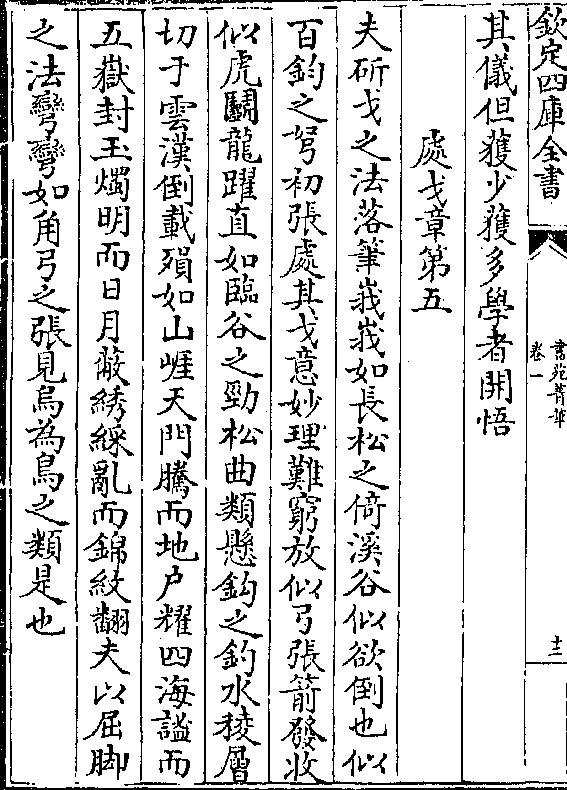 欽定四庫全書
書苑菁華
卷一
十三
其儀但獲少獲多學者開悟
處戈章第五
夫斫戈之法落筆峩峩如長松之倚溪谷似欲倒也似
百鈞之弩初張處其戈意妙理難窮放似弓張箭發收
似虎鬬龍躍直如臨谷之勁松曲類懸鈎之釣水稜層
切于雲漢倒載殞如山崕天門騰而地户耀四海謐而
五嶽封玉燭明而日月蔽綉綵亂而錦紋翻夫以屈脚
之法彎彎如角弓之張見烏為烏之類是也